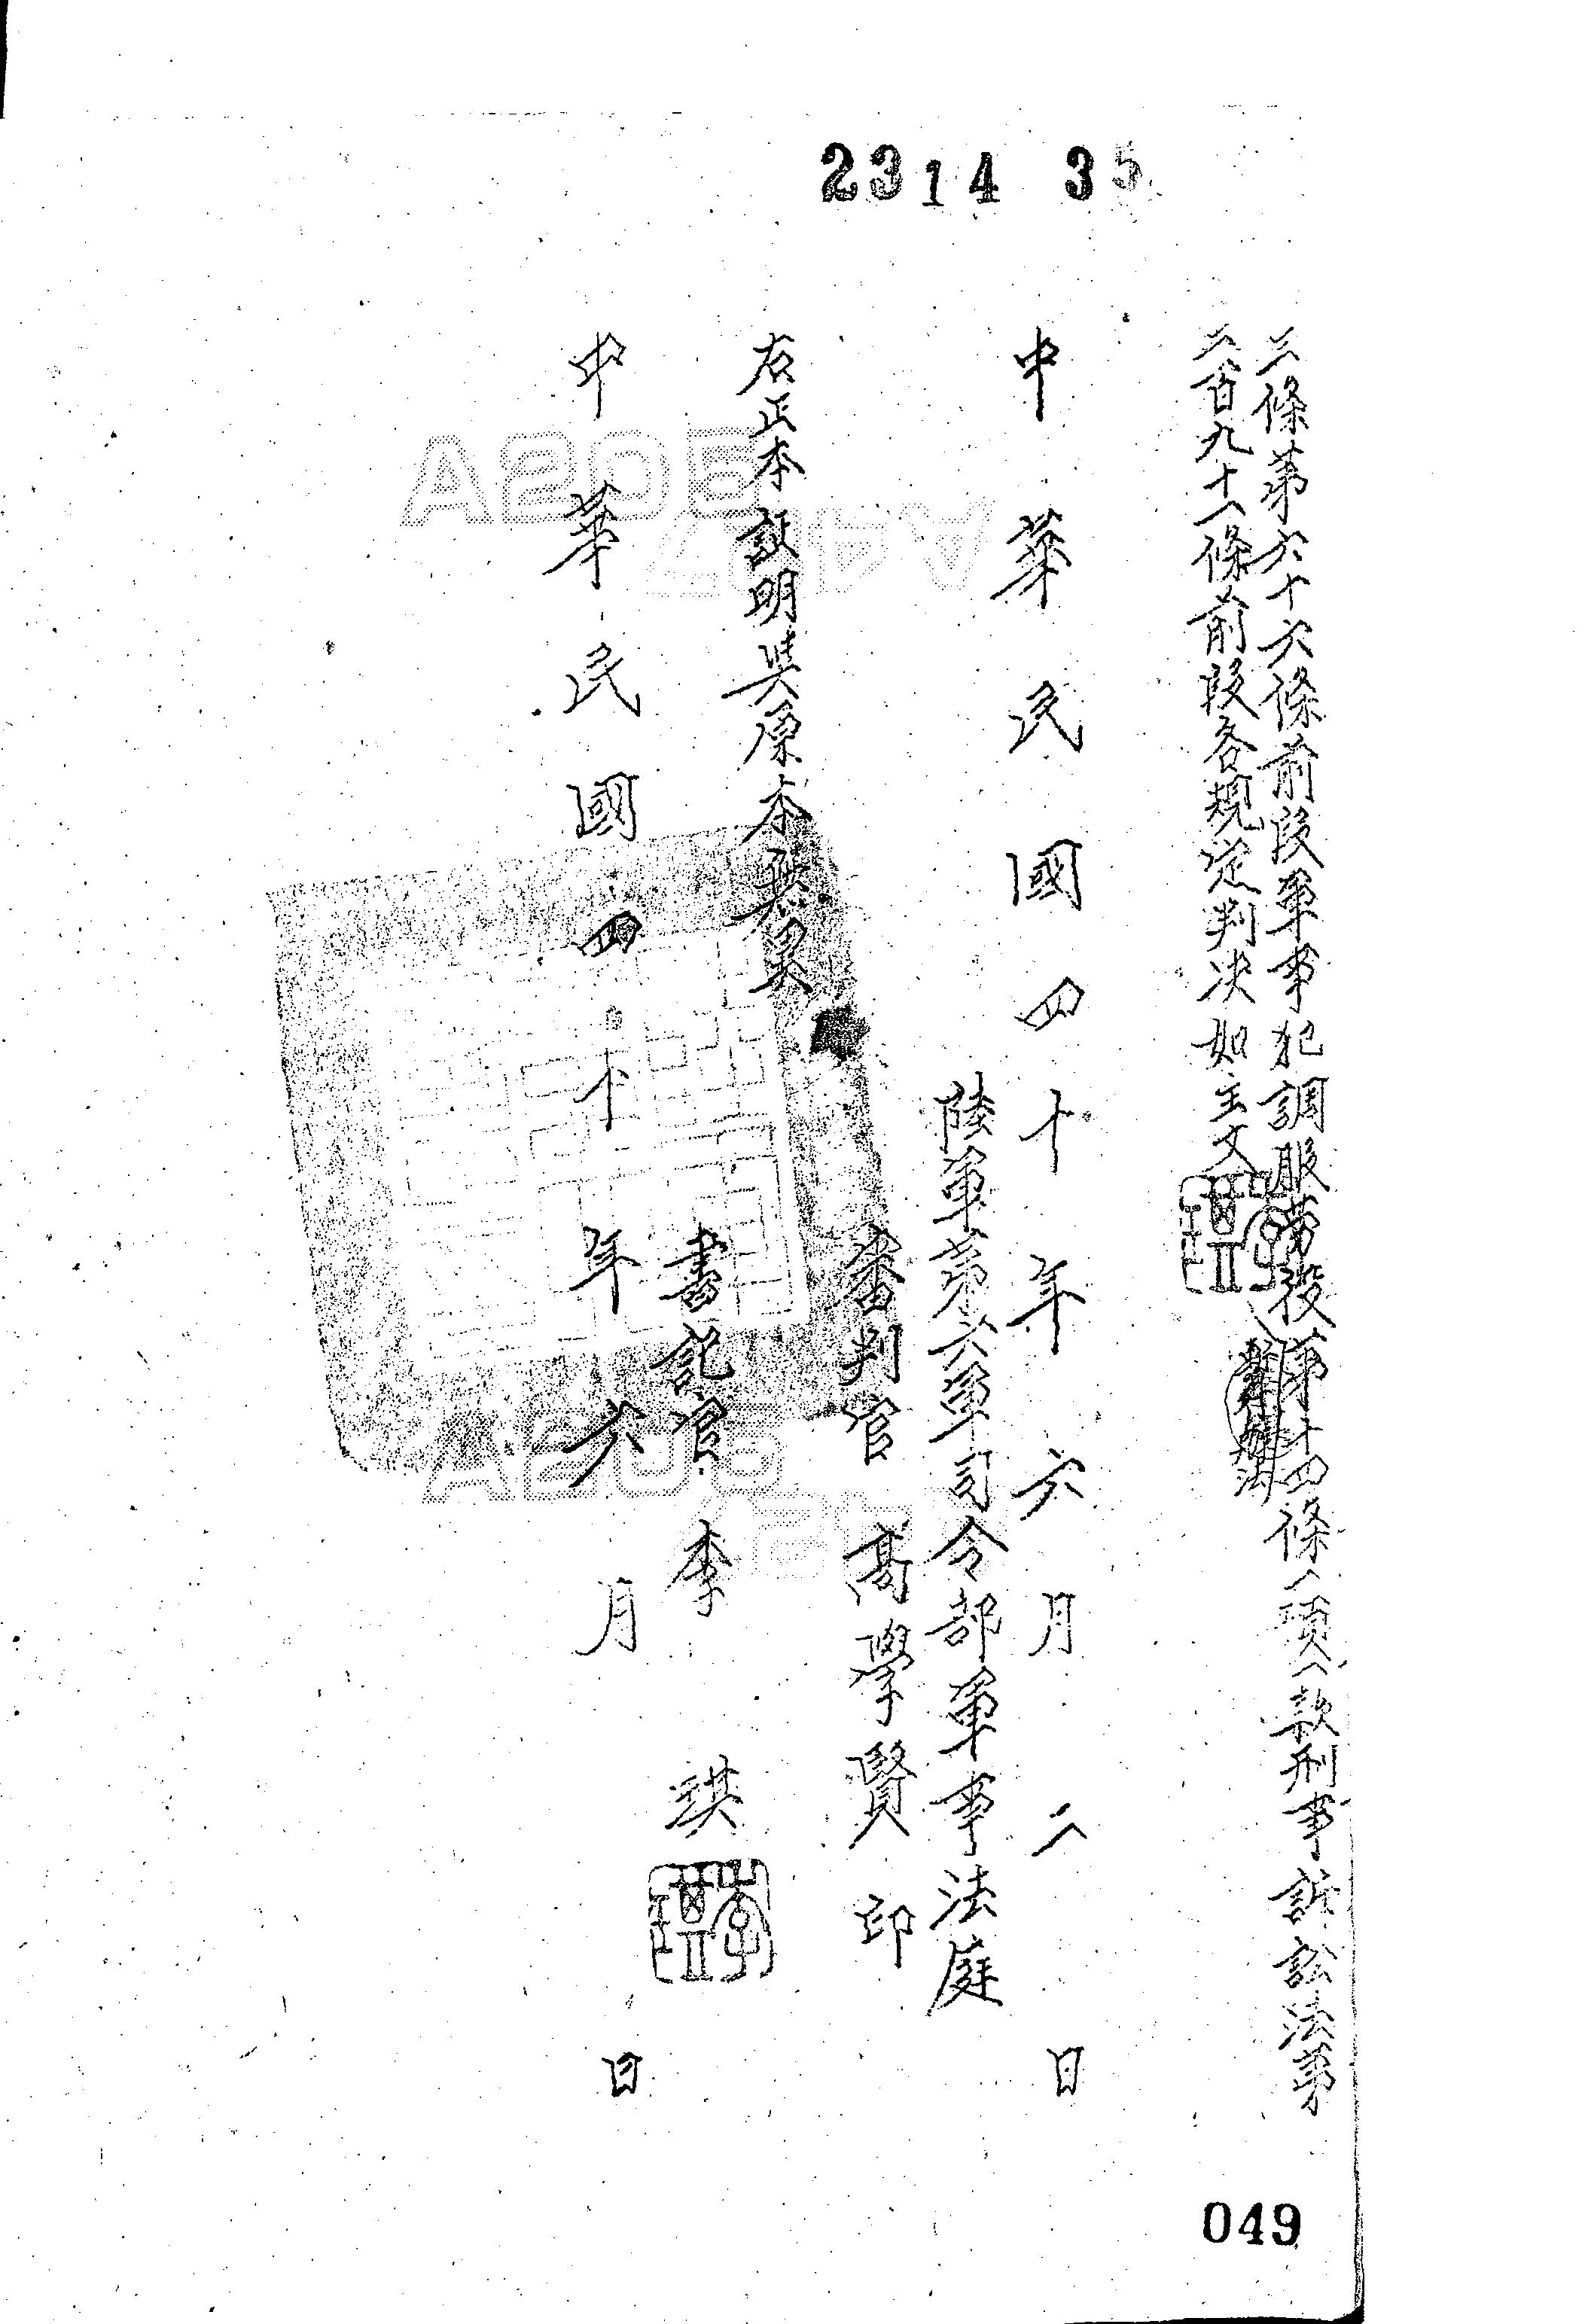 2314 35
三條第六十六條前段軍事犯調服勞役第十四條一項一款刑事訴訟法第
二百九十一條前段各規定判決如主文
中華民國四十年六月二日
陸軍第六軍司令部軍事法庭
審判官 高學賢 印
右正本証明與原本無異
書記官 李 琪
中華民國四十年六月 日
049